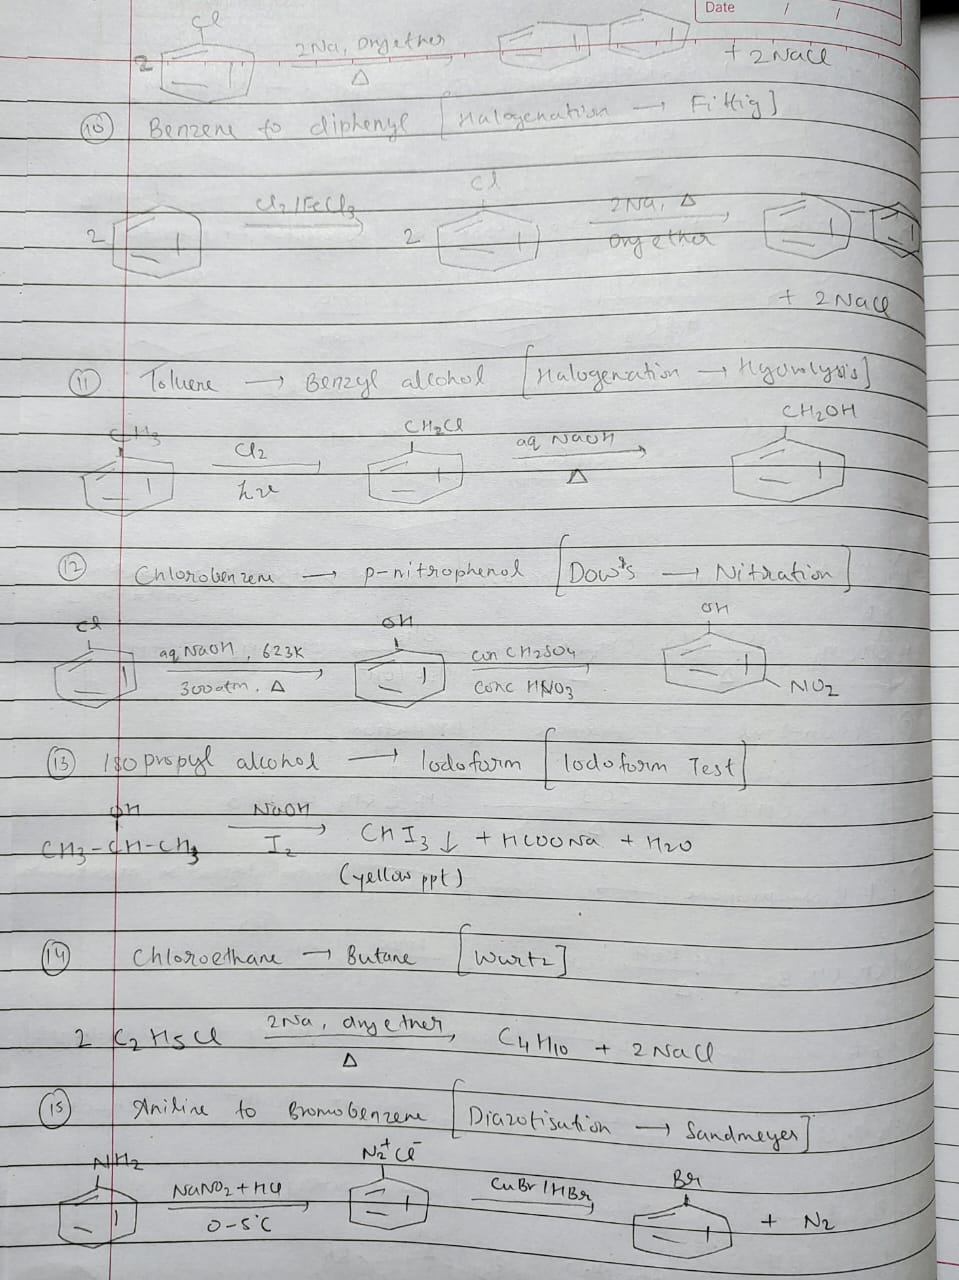 Date / /
Cl
2 2Na, Dryether + 2NaCl
Δ
(10) Benzene to diphenyl [Halogenation → Fittig]
Cl
2 Cl2/FeCl3 2 2Na, Δ
Dry ether
+ 2NaCl
(11) Toluene → Benzyl alcohol [Halogenation → Hydrolysis]
CH3 CH2Cl CH2OH
Cl2 aq NaOH
hν Δ
(12) Chlorobenzene → p-nitrophenol [Dow's → Nitration]
Cl OH OH
aq NaOH, 623K con CH2SO4
300atm, Δ conc HNO3 NO2
(13) Isopropyl alcohol → Iodoform [Iodoform Test]
OH NaOH
CH3-CH-CH3 I2 → CHI3↓ + HCOONa + H2O
(yellow ppt)
(14) Chloroethane → Butane [Wurtz]
2 C2H5Cl 2Na, dry ether, C4H10 + 2NaCl
Δ
(15) Aniline to Bromobenzene [Diazotisation → Sandmeyer]
NH2 N2+Cl- Br
NaNO2 + HCl CuBr/HBr
0-5°C + N2